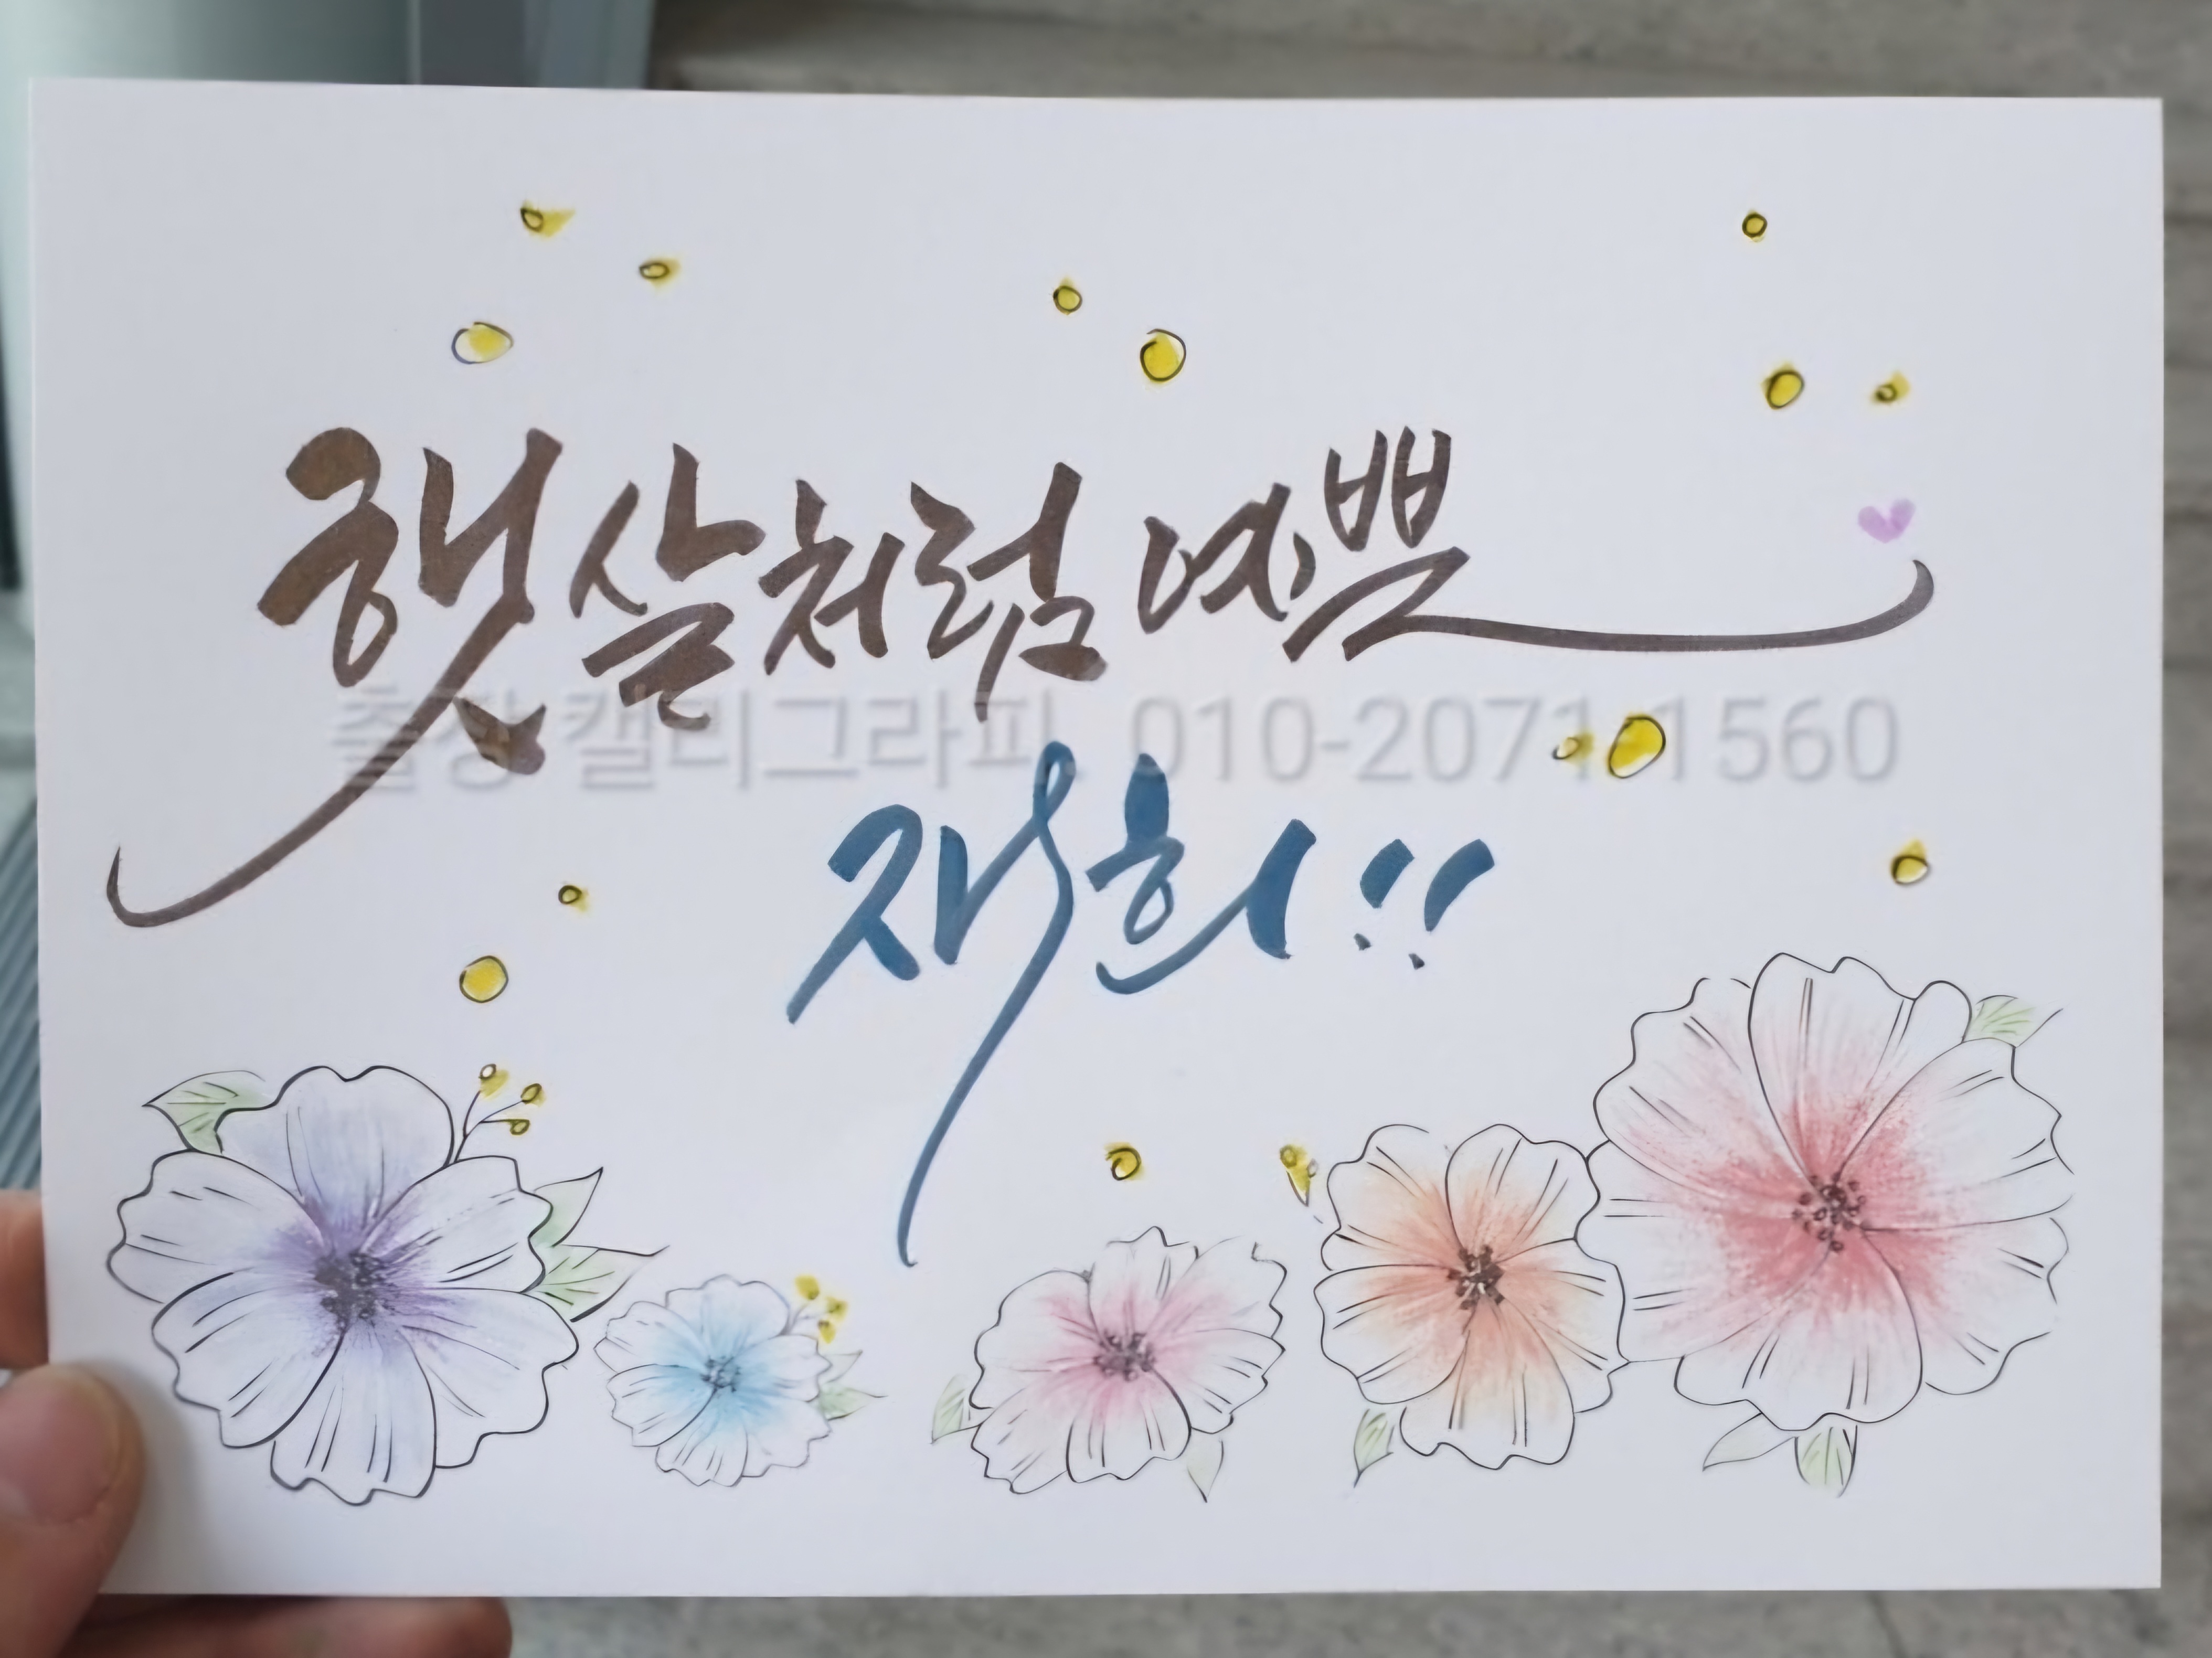 햇살처럼 예쁜
출장 캘리그라피. 010-2071-1560
재희!!